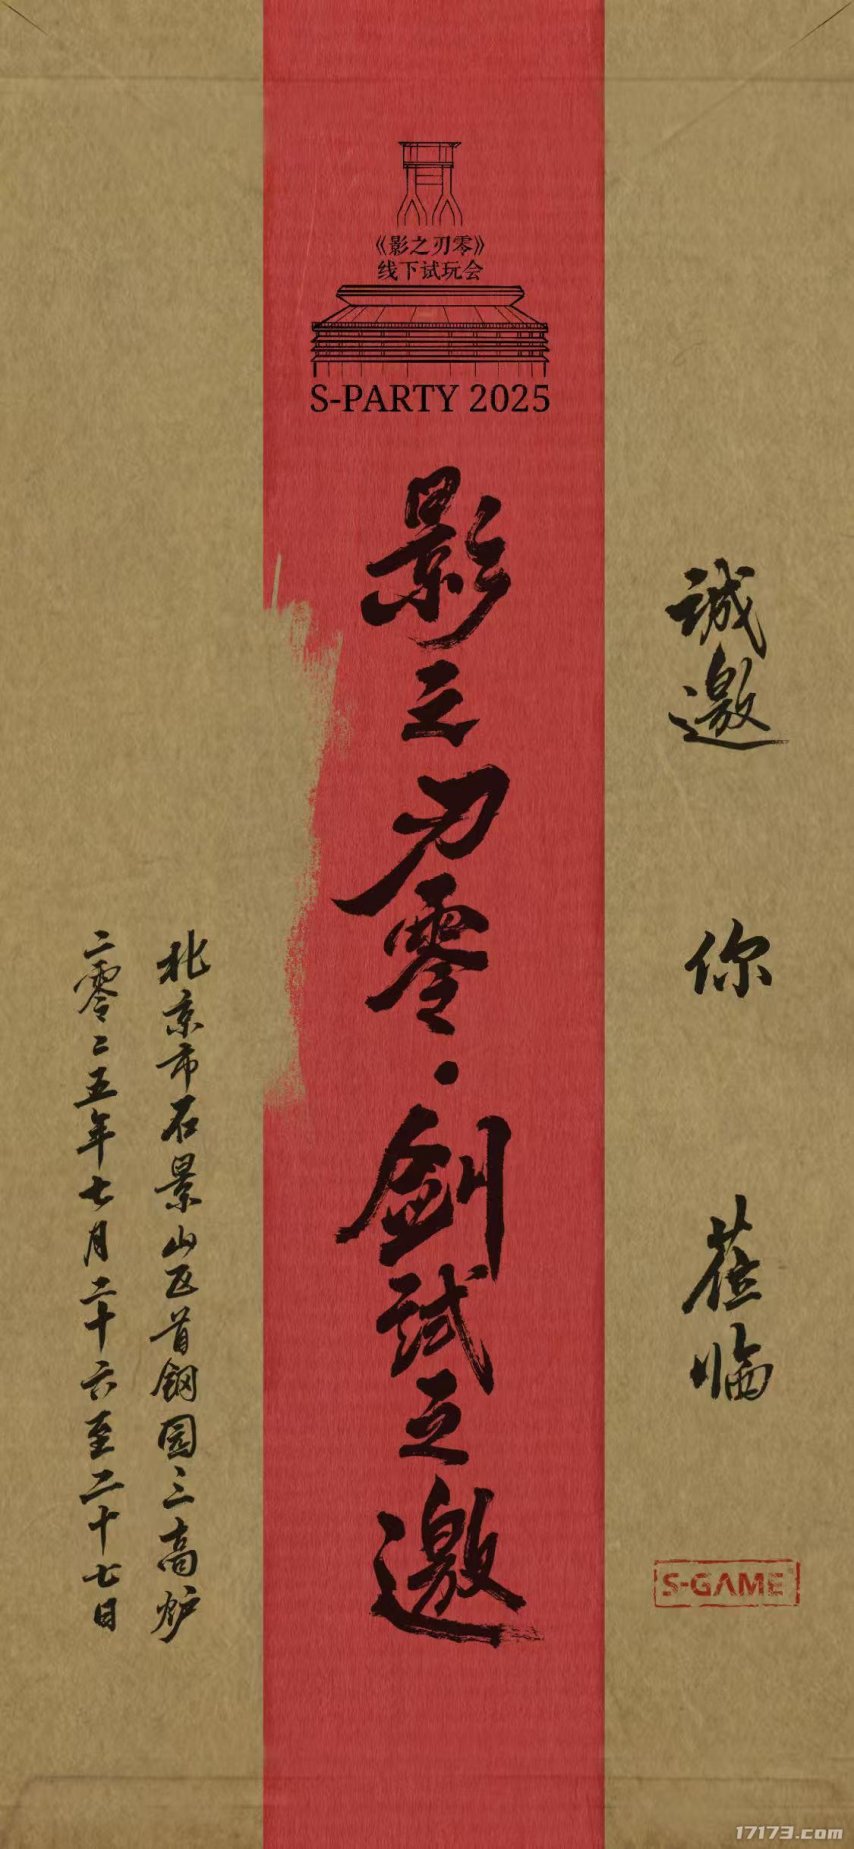 《影之刃零》
线下试玩会
S-PARTY 2025
影之刃零·劍試之邀
誠邀
你
蒞臨
北京市石景山区首钢园三高炉
二零二五年七月二十六至二十七日
S-GAME
17173.com